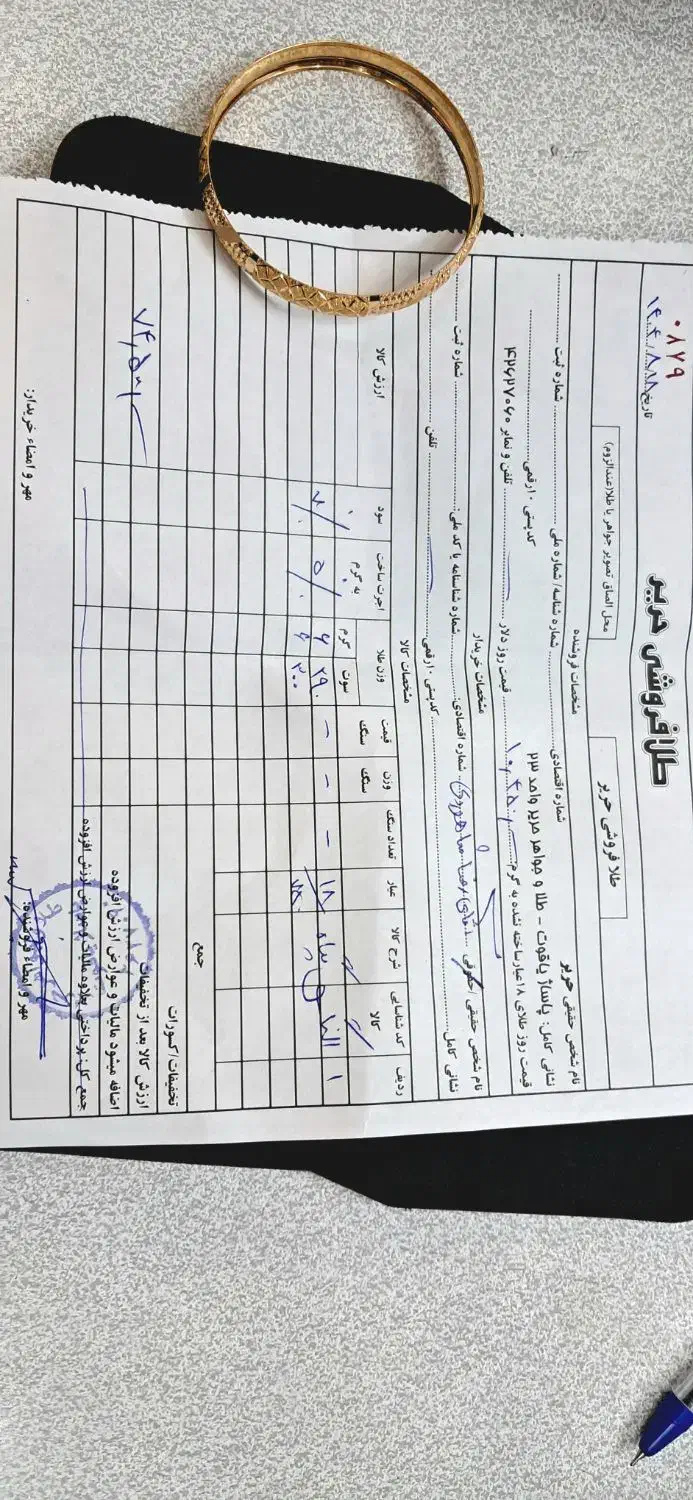 طلافروشی حریر
۰۸۷۹
تاریخ: ۱۴۰۴/۸/۱۸
طلا فروشی حریر
محل الصاق تصویر جواهر یا طلا(عندالزوم)
مشخصات فروشنده
نام شخص حقیقی حریر شماره اقتصادی: شماره شناسه/ شماره ملی شماره ثبت
نشانی کامل: پاساژ یاقوت - طلا و جواهر حریر واحد ۲۳ کدپستی ۱۰رقمی
قیمت روز طلای ۱۸عیارساخته نشده به گرم: قیمت روز دلار تلفن و نمابر ۴۲۶۲۷۰۶۰
مشخصات خریدار
نام شخص حقیقی /حقوقی شماره اقتصادی: شماره شناسامه یا کد ملی: شماره ثبت
نشانی کامل کدپستی ۱۰رقمی تلفن
مشخصات کالا
ردیف کد شناسایی کالا شرح کالا عیار تعداد سنگ وزن سنگ قیمت سنگ وزن طلا سوت گرم اجرت ساخت به گرم سود ارزش کالا
۱ النگو ۱۸ - - - ۲۹۰ ۶ ۵٪
۷۸۰ ۳۰۰ ۶ ۷٪
جمع
تخفیفات/کسورات
ارزش کالا بعد از تخفیفات ۷۴,۵۰۰
اضافه میشود مالیات و عوارض ارزش افزوده
جمع کل: پرداختی بعلاوه مالیات و عوارض ارزش افزوده
مهر و امضاء فروشنده: مهر و امضاء خریدار: